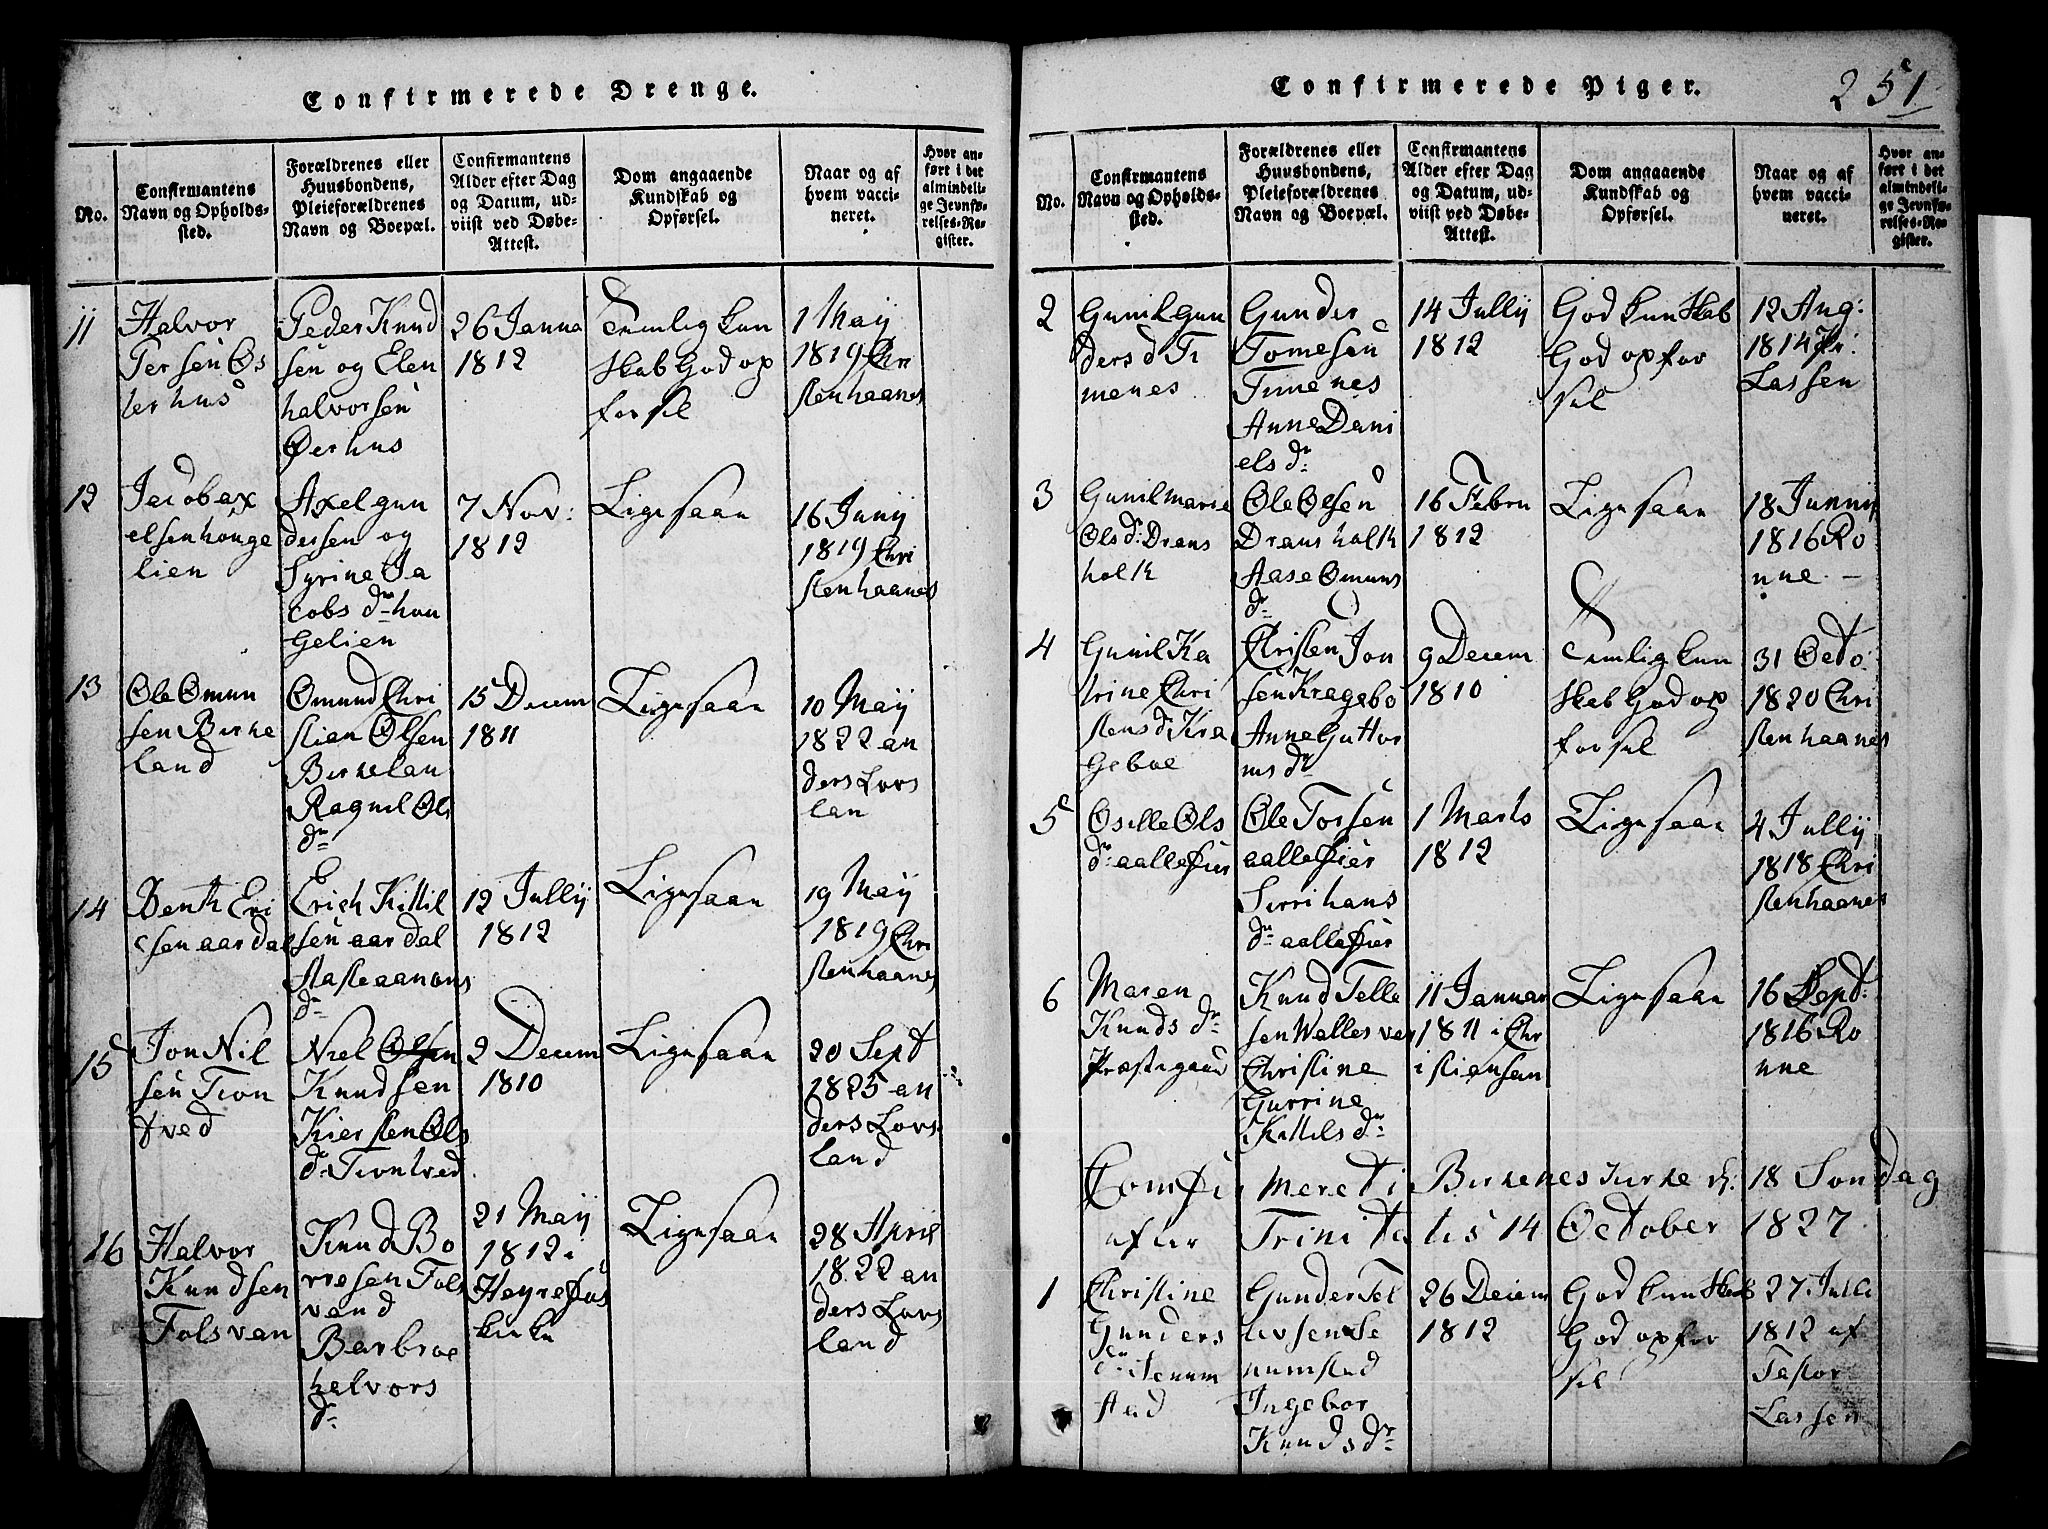 Confirmerede Drenge.
No.
Confirmantens
Navn og Opholds-
sted.
Forældrenes eller
Huusbondens,
Pleieforældrenes
Navn og Boepæl.
Confirmantens
Alder efter Dag
og Datum, ud-
viist ved Døbe-
Attest.
Dom angaaende
Kundskab og
Opførsel.
Naar og af
hvem vacci-
neret.
Hvor an-
ført i det
almindeli-
ge Jevnfø-
relses-Re-
gister.
11
Halvor
Persen Øs
terhus
Peder Knud
sen og Elen
halvorsen
Øerhus
26 Janna
1812
Temlig kun
skab God op
forsel
1 Maij
1819 Chri
stenhaanes
12
Jacob ax
elsen honge
lien
Axel gun
dersen og
Syrine Ja
cobs dr hon
Gelien
7 Nov:
1812
Ligesaan
16 Junij
1819 Chri
stenhaanes
13
Ole Omun
sen Birke
land
Omund Chri
stien Olsen
Birkelan
Ragnil Ols
dr
15 Decem
1811
Ligesaan
10 Maij
1822 an
ders Lovs
lan
14
Benth Eri
csen aardal
Erich Kittil
sen aardal
Aaste aanons
dr
12 Jullij
1812
Ligesaan
19 Maij
1819 Chri
stenhaanes
15
Jon Nil
sen Tron
tved
Niel Olsen
Knudsen
Kiersten Ols
dr Trontved
2 Decem
1810
Ligesaan
20 Sept
1825 an
ders Lovs
land
16
Halvor
Knudsen
Folsvan
Knud Bo
rresen Fols
vand
Barbroe
halvors
dr
21 Maij
1812 i
Heyrefos
kirke
Ligesaan
28 April
1822 an
ders Lovs
land
Confirmerede Piger.
251
No.
Confirmantens
Navn og Opholds-
sted.
Forældrenes eller
Huusbondens,
Pleieforældrenes
Navn og Boepæl.
Confirmantens
Alder efter Dag
og Datum, ud-
viist ved Døbe-
Attest.
Dom angaaende
Kundskab og
Opførsel.
Naar og af
hvem vacci-
neret.
Hvor an-
ført i det
almindeli-
ge Jevnfø-
relses-Re-
gister.
2
Gunil Gun
ders d Ti
menes
Gunder
Tomesen
Timenes
Anne Dani
els dr
14 Jullij
1812
God kunskab
God opfor
sel
12 Aug:
1814 Hr:
Lassen
3
Gunil marie
Ols dr Drans
holt
Ole Olsen
Dransholt
Aase Omuns
dr
16 Febru
1812
Ligesaan
18 Junnij
1816 Ro
nne
4
Gunil Ka
trine Chri
stens d Kra
geboe
Christen Jon
sen Kragebo
Anne Guttor
ms dr
9 Decem
1810
Temlig kun
skab God op
forsel
31 Octo
1820 Chri
stenhaanes
5
Osille Ols
dr aallefier
Ole Torsen
aallefier
Sirri hans
dr aallefier
1 Marts
1812
Ligesaan
4 Jullij
1818 Chri
stenhaanes
6
Maren
Knuds dr
Præstegaard
Knud Telle
sen Wallesver
Christine
Gurrine
Kittils dr
11 Januar
1811 i Chr
istiensen
Ligesaan
16 Sept:
1816 Ro
nne
Comfirmeret i Birkenes Kirke d: 18 Sondag
efter Trinitatis 14 October 1827
1
Christine
Gunders
dr Senum
stad
Gunder Tel
levsen Se
numstad
Ingebor
Knuds dr
26 Decem
1812
God kunskab
God opfor
sel
27 Julli
1812 af
Pastor
Lassen